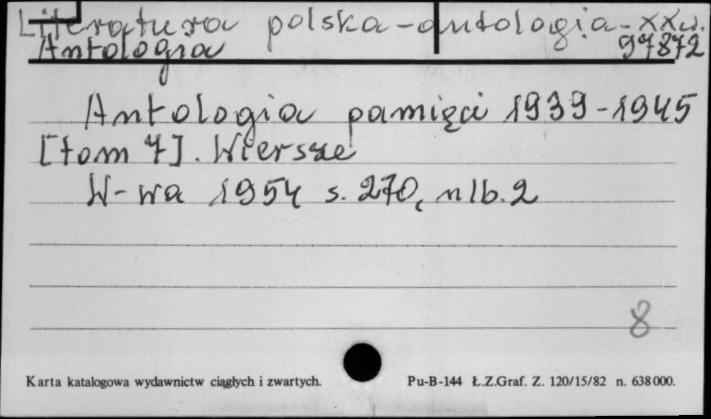 Literatura polska - antologia - XXw.
Antologia 97872
Antologia pamięci 1939-1945
[tom 7]. Wiersze
W-wa 1954 s. 270, nlb. 2
8
Karta katalogowa wydawnictw ciągłych i zwartych. Pu-B-144 Ł.Z.Graf. Z. 120/15/82 n. 638000.